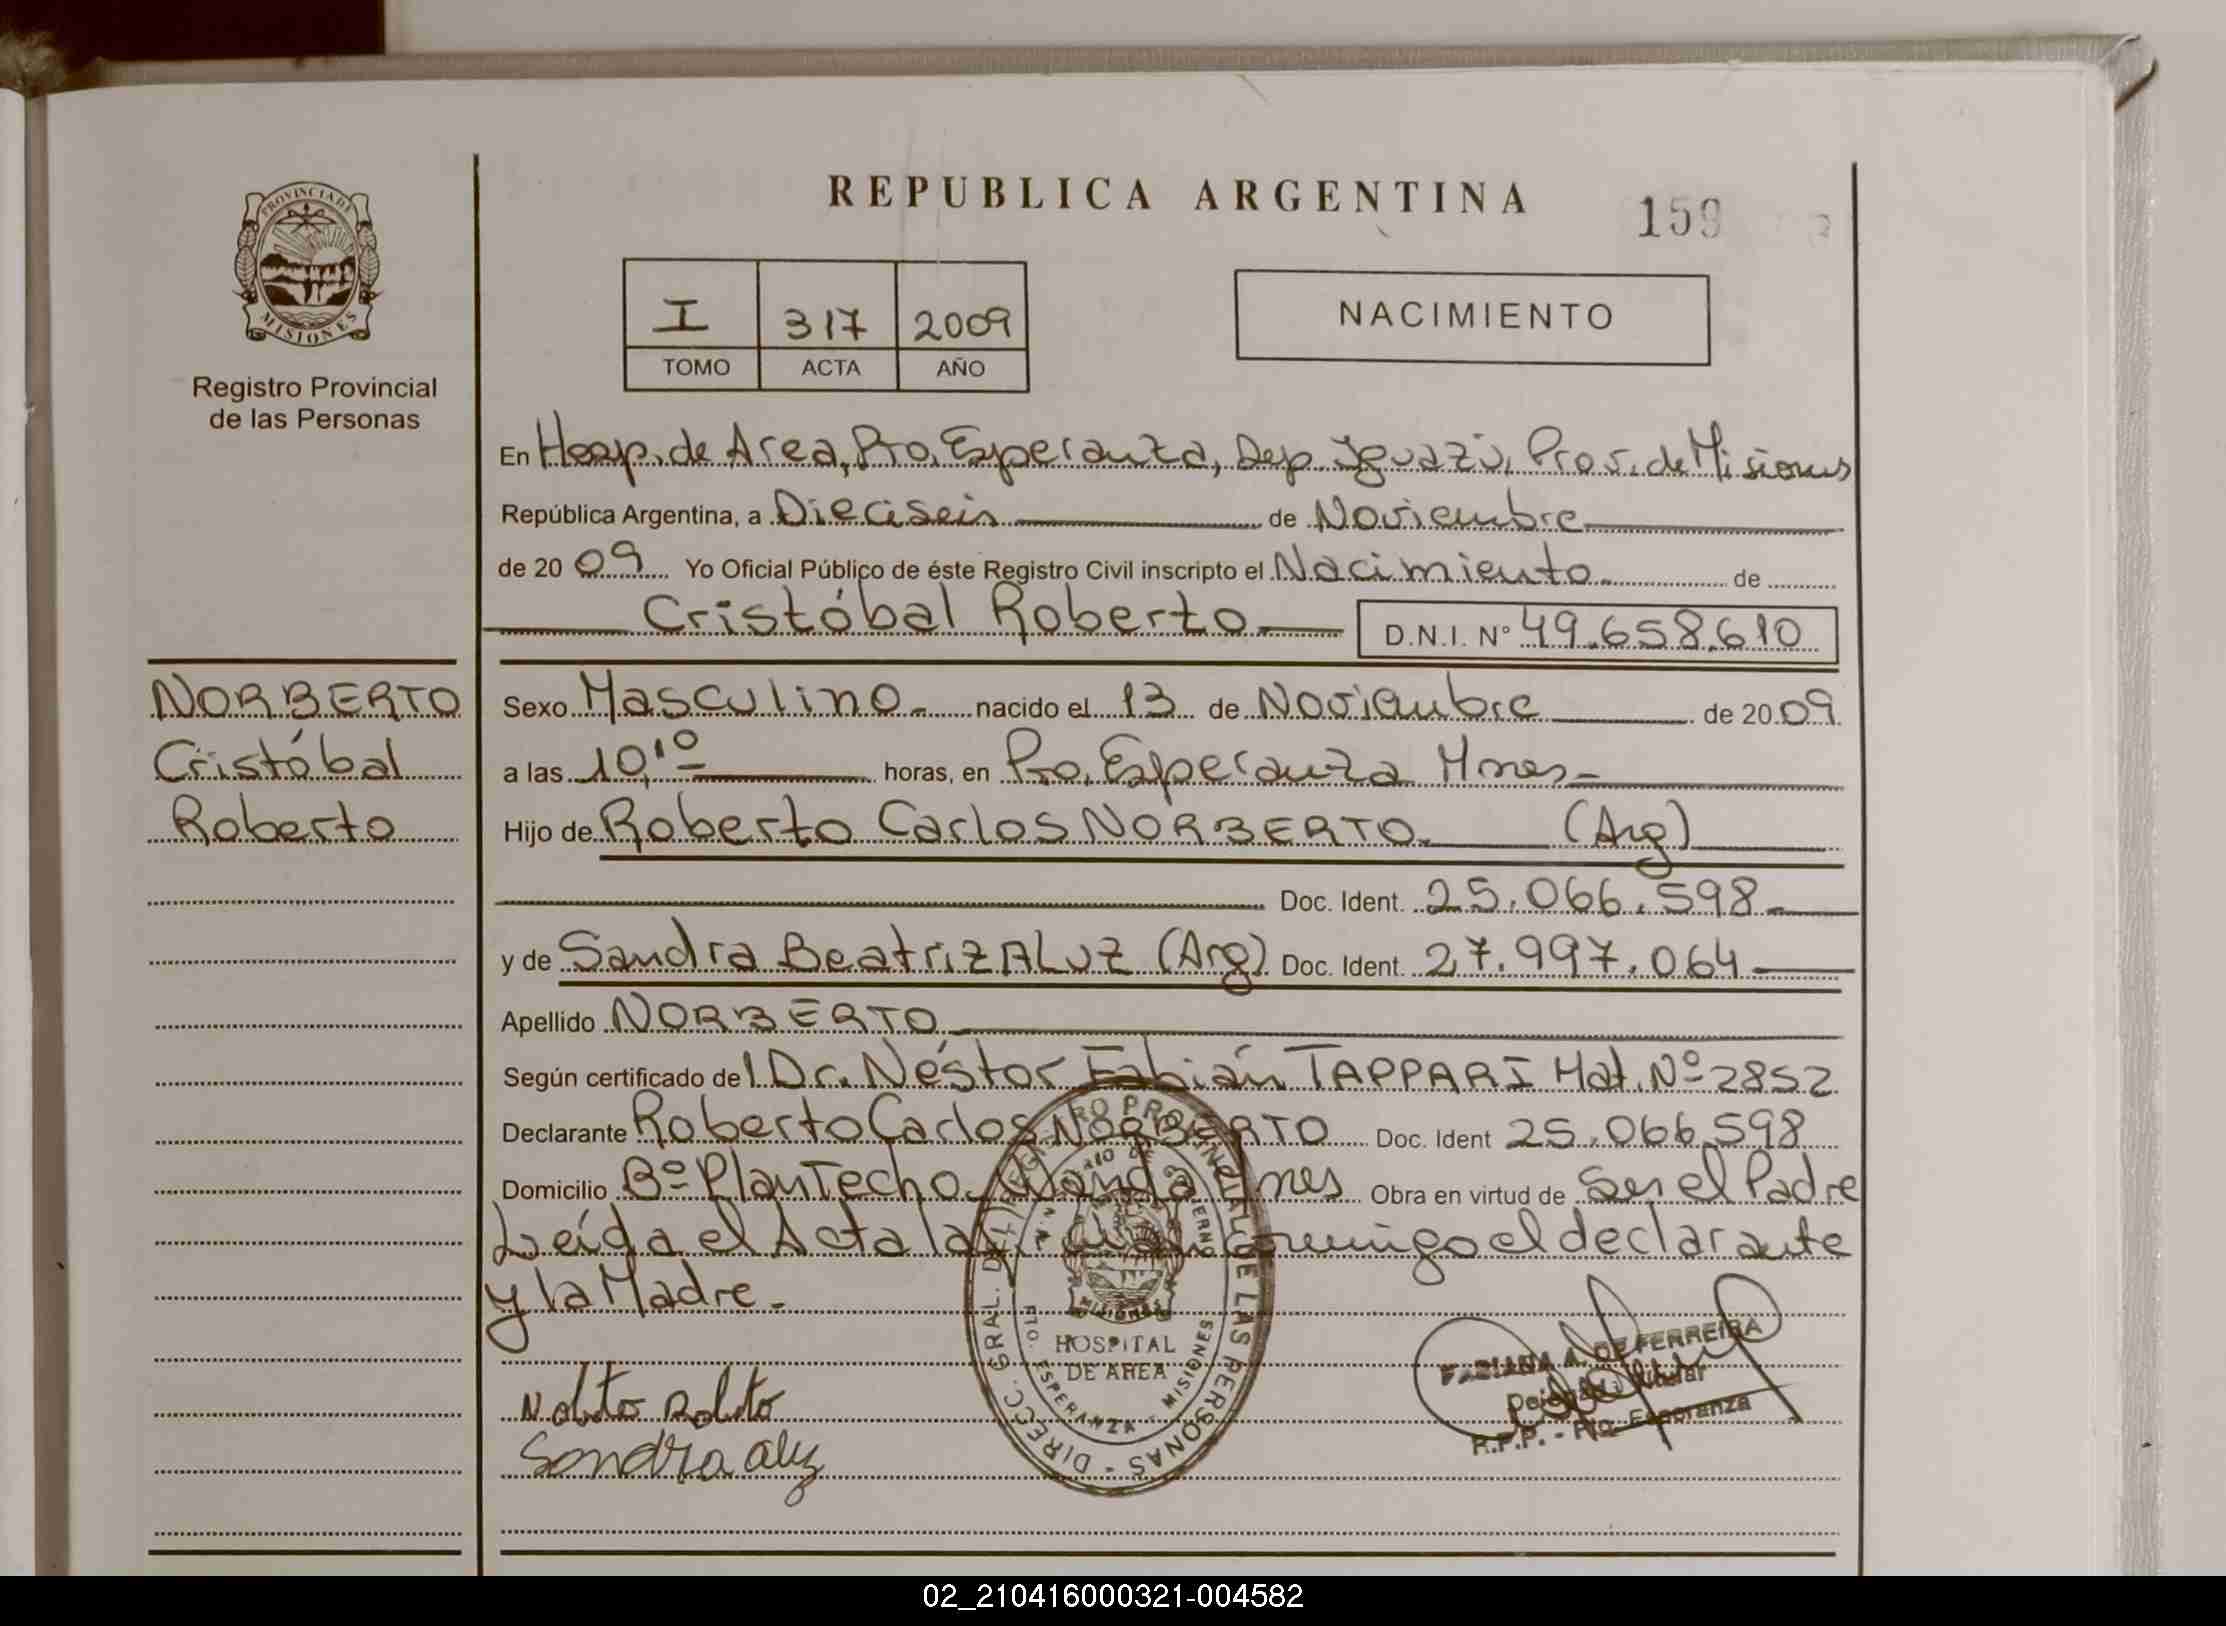 REPUBLICA ARGENTINA
159
PROVINCIA DE MISIONES
Registro Provincial
de las Personas
I 317 2009
TOMO ACTA AÑO
NACIMIENTO
En Hosp. de Area, Pto. Esperanza, Dep. Iguazú, Prov. de Misiones
República Argentina, a Dieciseis de Noviembre
de 2009 Yo Oficial Público de éste Registro Civil inscripto el Nacimiento de
Cristóbal Roberto D.N.I. N° 49.658.610
NORBERTO
Cristóbal
Roberto
Sexo Masculino nacido el 13 de Noviembre de 2009
a las 10,10 horas, en Pto. Esperanza Mnes
Hijo de Roberto Carlos NORBERTO (Arg)
Doc. Ident. 25.066.598
y de Sandra Beatriz ALUZ (Arg) Doc. Ident. 27.997.064
Apellido NORBERTO
Según certificado del Dr. Néstor Fabián TAPPARI Mat. Nº 2852
Declarante Roberto Carlos NORBERTO Doc. Ident 25.066.598
Domicilio Bº Plan Techo Wanda Mnes Obra en virtud de Ser el Padre
Leída el Acta la conmigo el declarante
y la Madre.
DIRECC. GRAL. DEL REGISTRO PROVINCIAL DE LAS PERSONAS
MISIONES
HOSPITAL
DE AREA
PTO. ESPERANZA - MISIONES
FABIANA A. DE FERREIRA
Titular
R.P.P. - Pto. Esperanza
Sandra aluz
02_210416000321-004582